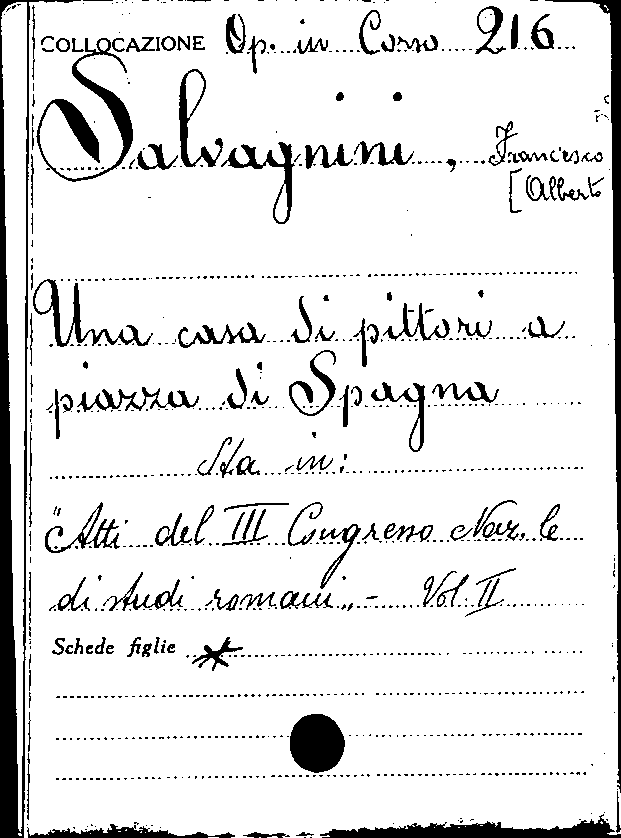 COLLOCAZIONE Op. in Corso 216
Salvagnini, Francesco
[Alberto
Una casa di pittori a
piazza di Spagna
Sta in:
"Atti del III Congresso Naz.le
di studi romani„ - Vol. II
Schede figlie